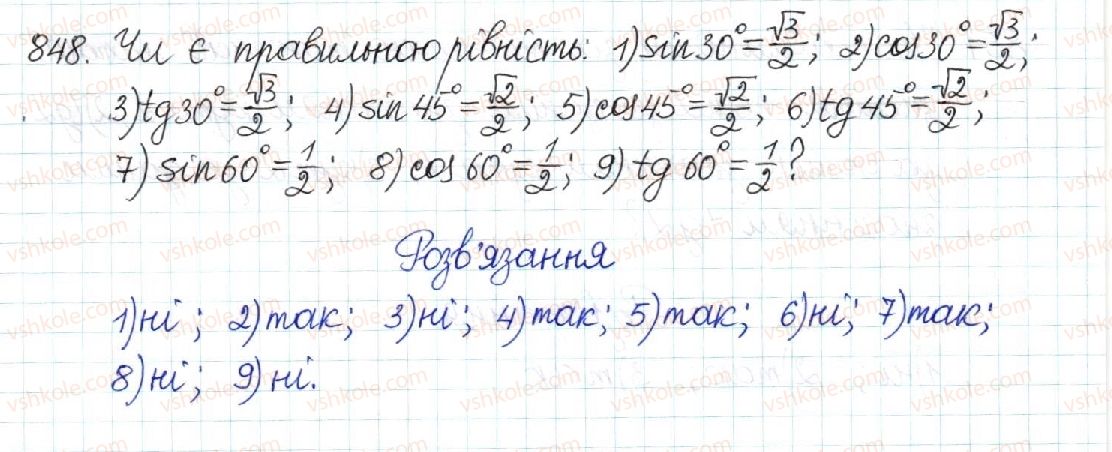 848. Чи є правильною рівність: 1) sin30°=√3/2; 2) cos30°=√3/2;
3) tg30°=√3/2; 4) sin45°=√2/2; 5) cos45°=√2/2; 6) tg45°=√2/2;
7) sin60°=1/2; 8) cos60°=1/2; 9) tg60°=1/2?
Розв'язання
1) ні; 2) так; 3) ні; 4) так; 5) так; 6) ні; 7) так;
8) ні; 9) ні.